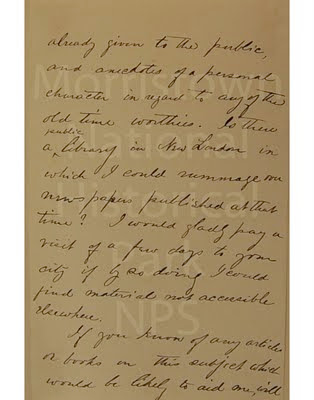 already given to the public,
and anecdotes of a personal
character in regard to any of the
old time worthies. Is there
public
a library in New London in
which I could rummage over
newspapers published at that
time? I would gladly pay a
visit of a few days to your
city if by so doing I could
find material not accessible
elsewhere.
If you know of any articles
or books on this subject which
would be likely to aid me, will
National
Historical
Park
NPS